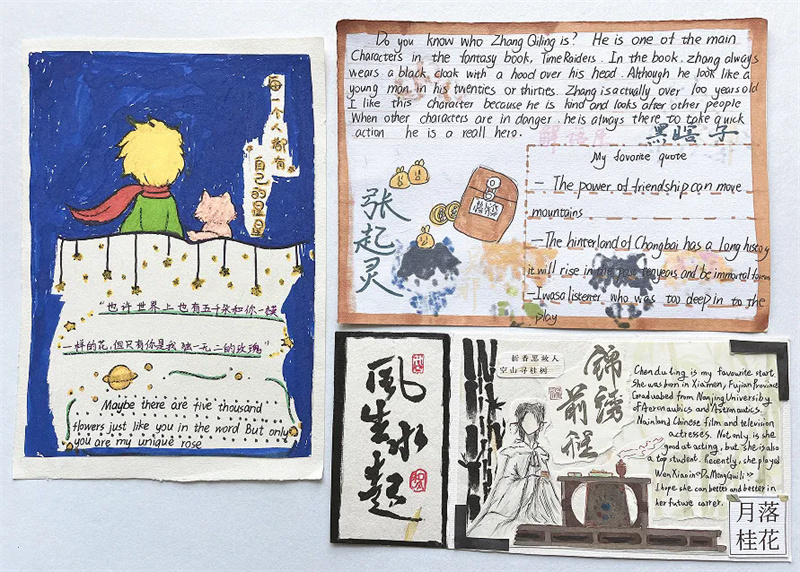 每一个人都有
自己的星星
"也许世界上也有五千朵和你一模
一样的花,但只有你是我独一无二的玫瑰"
Maybe there are five thousand
flowers just like you in the word But only
you are my unique rose
Do you know who Zhang Qiling is? He is one of the main
Characters in the fantasy book, Time Raiders. In the book. zhang always
wears a black cloak with a hood over his head. Although he look like a
young man in his twenties or thirties. Zhang is actually over 100 years old
I like this character because he is kind and looks after other people
When other characters are in danger. he is always there to take quick
action he is a reall hero.
黑瞎子
张起灵
My favorite quote
— The power of friendship can move
mountains
— The hinterland of Changbai has a long history
it will rise in the past ten years and be immortal forever
— I was a listener who was too deep in to the
play
風生水起
新香思故人
空山寻桂树
锦绣前程
Chendu ling is my favourite start
she was born in Xiamen, Fujian Province
Graduabed from Nanjing University
of Aeronautics and Astronautics.
Mainland Chinese film and television
actresses. Not only is she
good at acting, but she is also
a top student. Recently, she played
Wen Xiaoin《Da Meng Gui li》
I hope she can better and better in
her future carrer.
月落
桂花